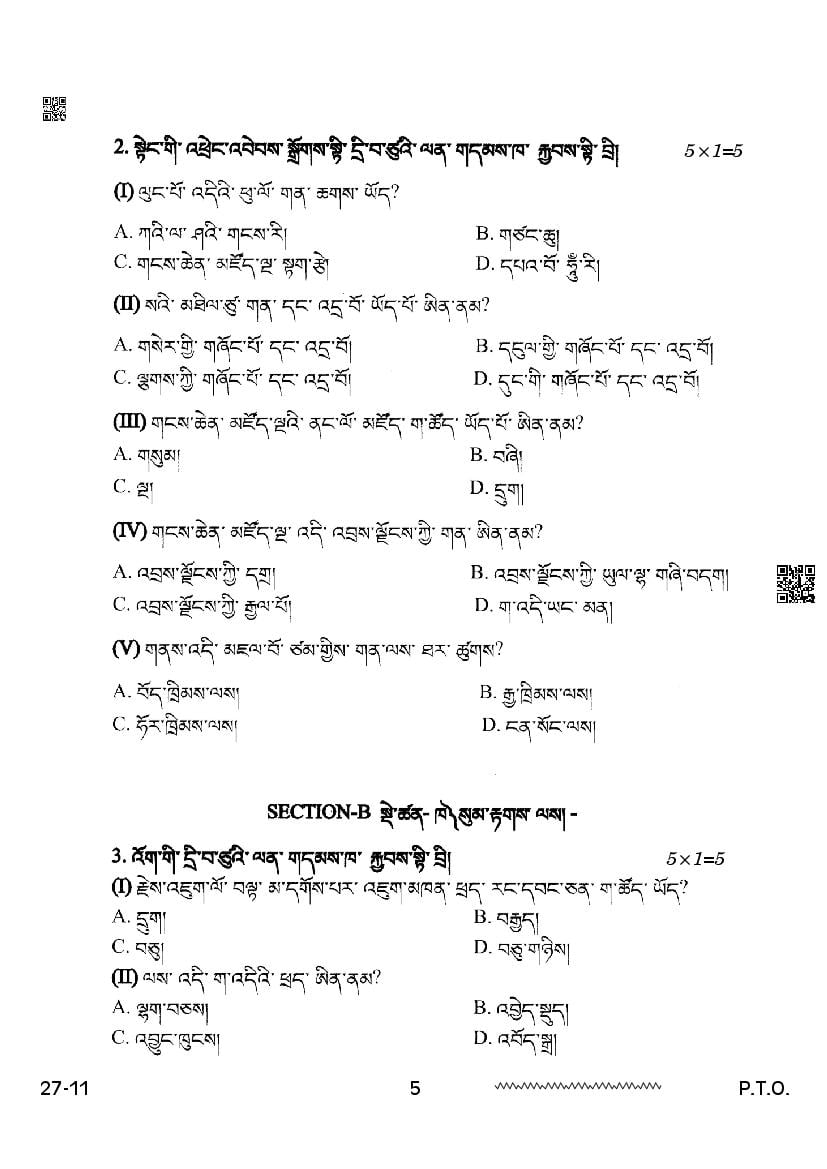 2. སྟེང་གི་ འཕྲེང་འབེབས་ སྒྲོགས་སྟི་ དྲི་བ་ཙུའི་ ལན་ གདམས་ཁ་ རྐྱབས་སྟི་ བྲི། 5×1=5
(I) ལུང་པོ་ འདིའི་ ཕུ་ལོ་ གན་ ཆགས་ ཡོད?
A. ཀའི་ལ་ ཤའི་ གངས་རི། B. གཙང་ཆུ།
C. གངས་ཆེན་ མཛོད་ལྔ་ སྟག་རྩེ། D. དཔའ་བོ་ ཧཱུྃ་རི།
(II) སའི་ མཐིལ་ཙུ་ གན་ དང་ འདྲ་བོ་ ཡོད་པོ་ ཨིན་ནམ?
A. གསེར་གྱི་ གཞོང་པོ་ དང་ འདྲ་བོ། B. དངུལ་གྱི་ གཞོང་པོ་ དང་ འདྲ་བོ།
C. ལྕགས་ཀྱི་ གཞོང་པོ་ དང་ འདྲ་བོ། D. དུང་གི་ གཞོང་པོ་ དང་ འདྲ་བོ།
(III) གངས་ཆེན་ མཛོད་ལྔའི་ ནང་ལོ་ མཛོད་ ག་ཚོད་ ཡོད་པོ་ ཨིན་ནམ?
A. གསུམ། B. བཞི།
C. ལྔ། D. དྲུག།
(IV) གངས་ཆེན་ མཛོད་ལྔ་ འདི་ འབྲས་ལྗོངས་ཀྱི་ གན་ ཨིན་ནམ?
A. འབྲས་ལྗོངས་ཀྱི་ དགྲ། B. འབྲས་ལྗོངས་ཀྱི་ ཡུལ་ལྷ་ གཞི་བདག།
C. འབྲས་ལྗོངས་ཀྱི་ རྒྱལ་པོ། D. ག་འདི་ཡང་ མན།
(V) གནས་འདི་ མཇལ་བོ་ ཙམ་གྱིས་ གན་ལས་ ཐར་ ཚུགས?
A. བོད་ཁྲིམས་ལས། B. རྒྱ་ཁྲིམས་ལས།
C. ཧོར་ཁྲིམས་ལས། D. ངན་སོང་ལས།
SECTION-B སྡེ་ཚན- ཁ༽ སུམ་རྟགས་ ལས། -
3. འོག་གི་ དྲི་བ་ཙུའི་ ལན་ གདམས་ཁ་ རྐྱབས་སྟི་ བྲི། 5×1=5
(I) རྗེས་འཇུག་ལོ་ བལྟ་ མ་དགོས་པར་ འཇུག་མཁན་ ཕྲད་ རང་དབང་ཅན་ ག་ཚོད་ ཡོད?
A. དྲུག། B. བརྒྱད།
C. བཅུ། D. བཅུ་གཉིས།
(II) ལས་ འདི་ ག་འདིའི་ ཕྲད་ ཨིན་ནམ?
A. ལྷག་བཅས། B. འབྱེད་སྡུད།
C. འབྱུང་ཁུངས། D. འབོད་སྒྲ།
27-11 5 P.T.O.